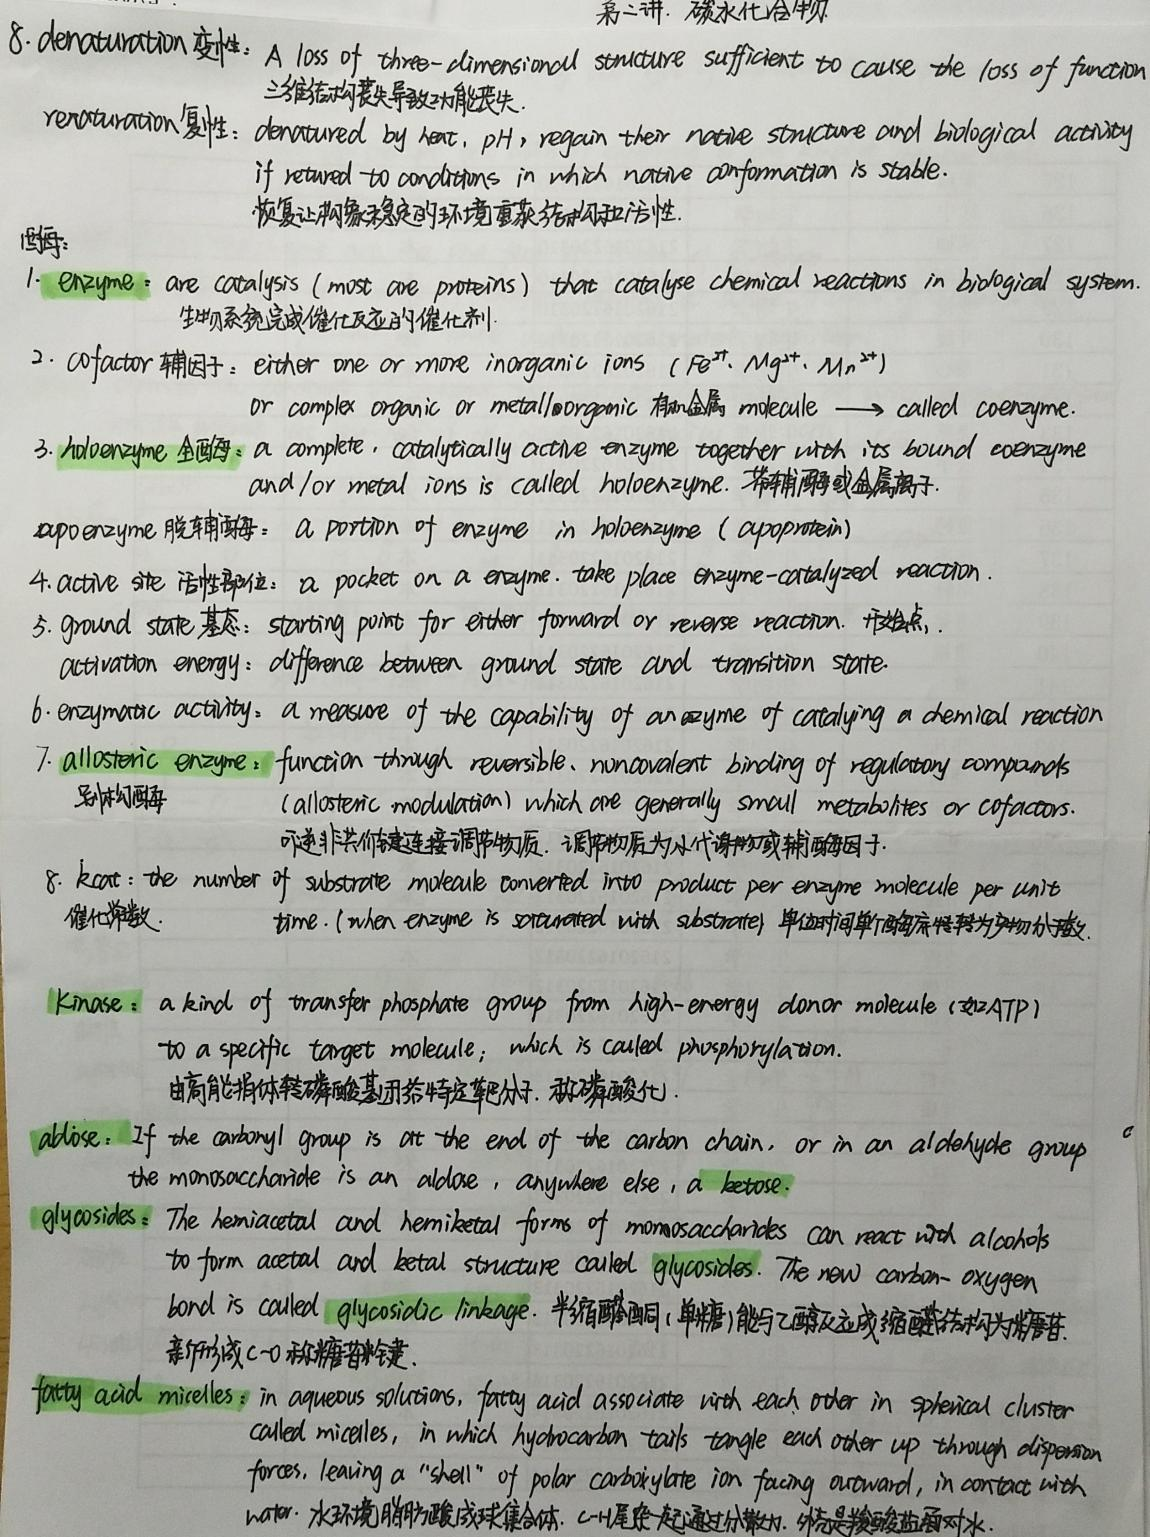 第二讲. 碳水化合物
8. denaturation 变性: A loss of three-dimensional structure sufficient to cause the loss of function
三维结构丧失导致功能丧失.
renaturation 复性: denatured by heat, pH, regain their native structure and biological activity
if retured to conditions in which native conformation is stable.
恢复让构象稳定的环境重获结构和活性.
酶:
1. enzyme: are catalysis (most are proteins) that catalyse chemical reactions in biological system.
生物系统完成催化反应的催化剂.
2. cofactor 辅因子: either one or more inorganic ions (Fe²⁺. Mg²⁺. Mn²⁺)
or complex organic or metalloorganic 有机金属 molecule → called coenzyme.
3. holoenzyme 全酶: a complete, catalytically active enzyme together with its bound coenzyme
and/or metal ions is called holoenzyme. 带辅酶或金属离子.
apoenzyme 脱辅酶: a portion of enzyme in holoenzyme (apoprotein)
4. active site 活性部位: a pocket on a enzyme. take place enzyme-catalyzed reaction.
5. ground state 基态: starting point for either forward or reverse reaction. 开始点.
activation energy: difference between ground state and transition state.
6. enzymatic activity: a measure of the capability of an ezyme of catalying a chemical reaction
7. allosteric enzyme: function through reversible, noncovalent binding of regulatory compounds
别构酶 (allosteric modulation) which are generally small metabolites or cofactors.
可逆非共价键连接调节物质. 调节物质为小代谢物或辅酶因子.
8. kcat: the number of substrate molecule converted into product per enzyme molecule per unit
催化常数. time. (when enzyme is saturated with substrate) 单位时间单个酶底物转为产物分子数.
Kinase: a kind of transfer phosphate group from high-energy donor molecule (如ATP)
to a specific target molecule; which is called phosphorylation.
由高能捐体转磷酸基团给特定靶分子. 称磷酸化.
aldose: If the carbonyl group is at the end of the carbon chain, or in an aldehyde group
the monosaccharide is an aldose, anywhere else, a ketose.
glycosides: The hemiacetal and hemiketal forms of monosaccharides can react with alcohols
to form acetal and ketal structure called glycosides. The new carbon-oxygen
bond is called glycosidic linkage. 半缩醛酮(单糖)能与乙醇反应成缩醛结构为糖苷.
新形成C-O称糖苷键.
fatty acid micelles: in aqueous solutions, fatty acid associate with each other in spherical cluster
called micelles, in which hydrocarbon tails tangle each other up through dispersion
forces, leaving a "shell" of polar carboxylate ion facing outward, in contact with
water. 水环境脂肪酸成球集合体. C-H尾杂一起通过分散力. 外壳是羧酸盐面对水.